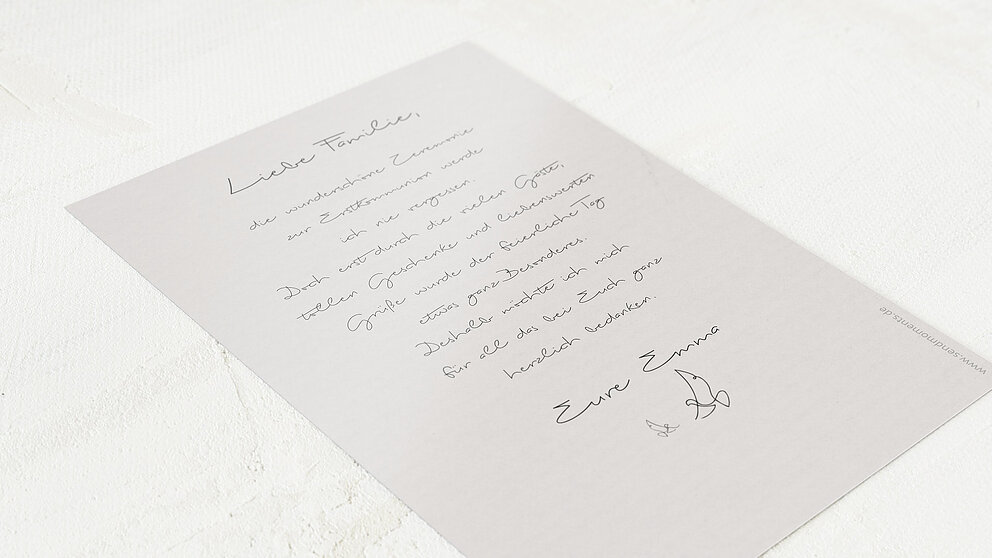 Liebe Familie,
die wunderschöne Zeremonie
zur Erstkommunion werde
ich nie vergessen.
Doch erst durch die vielen Gäste,
tollen Geschenke und liebenswerten
Grüße wurde der feierliche Tag
etwas ganz Besonderes.
Deshalb möchte ich mich
für all das bei Euch ganz
herzlich bedanken.
Eure Emma
www.sendmoments.de